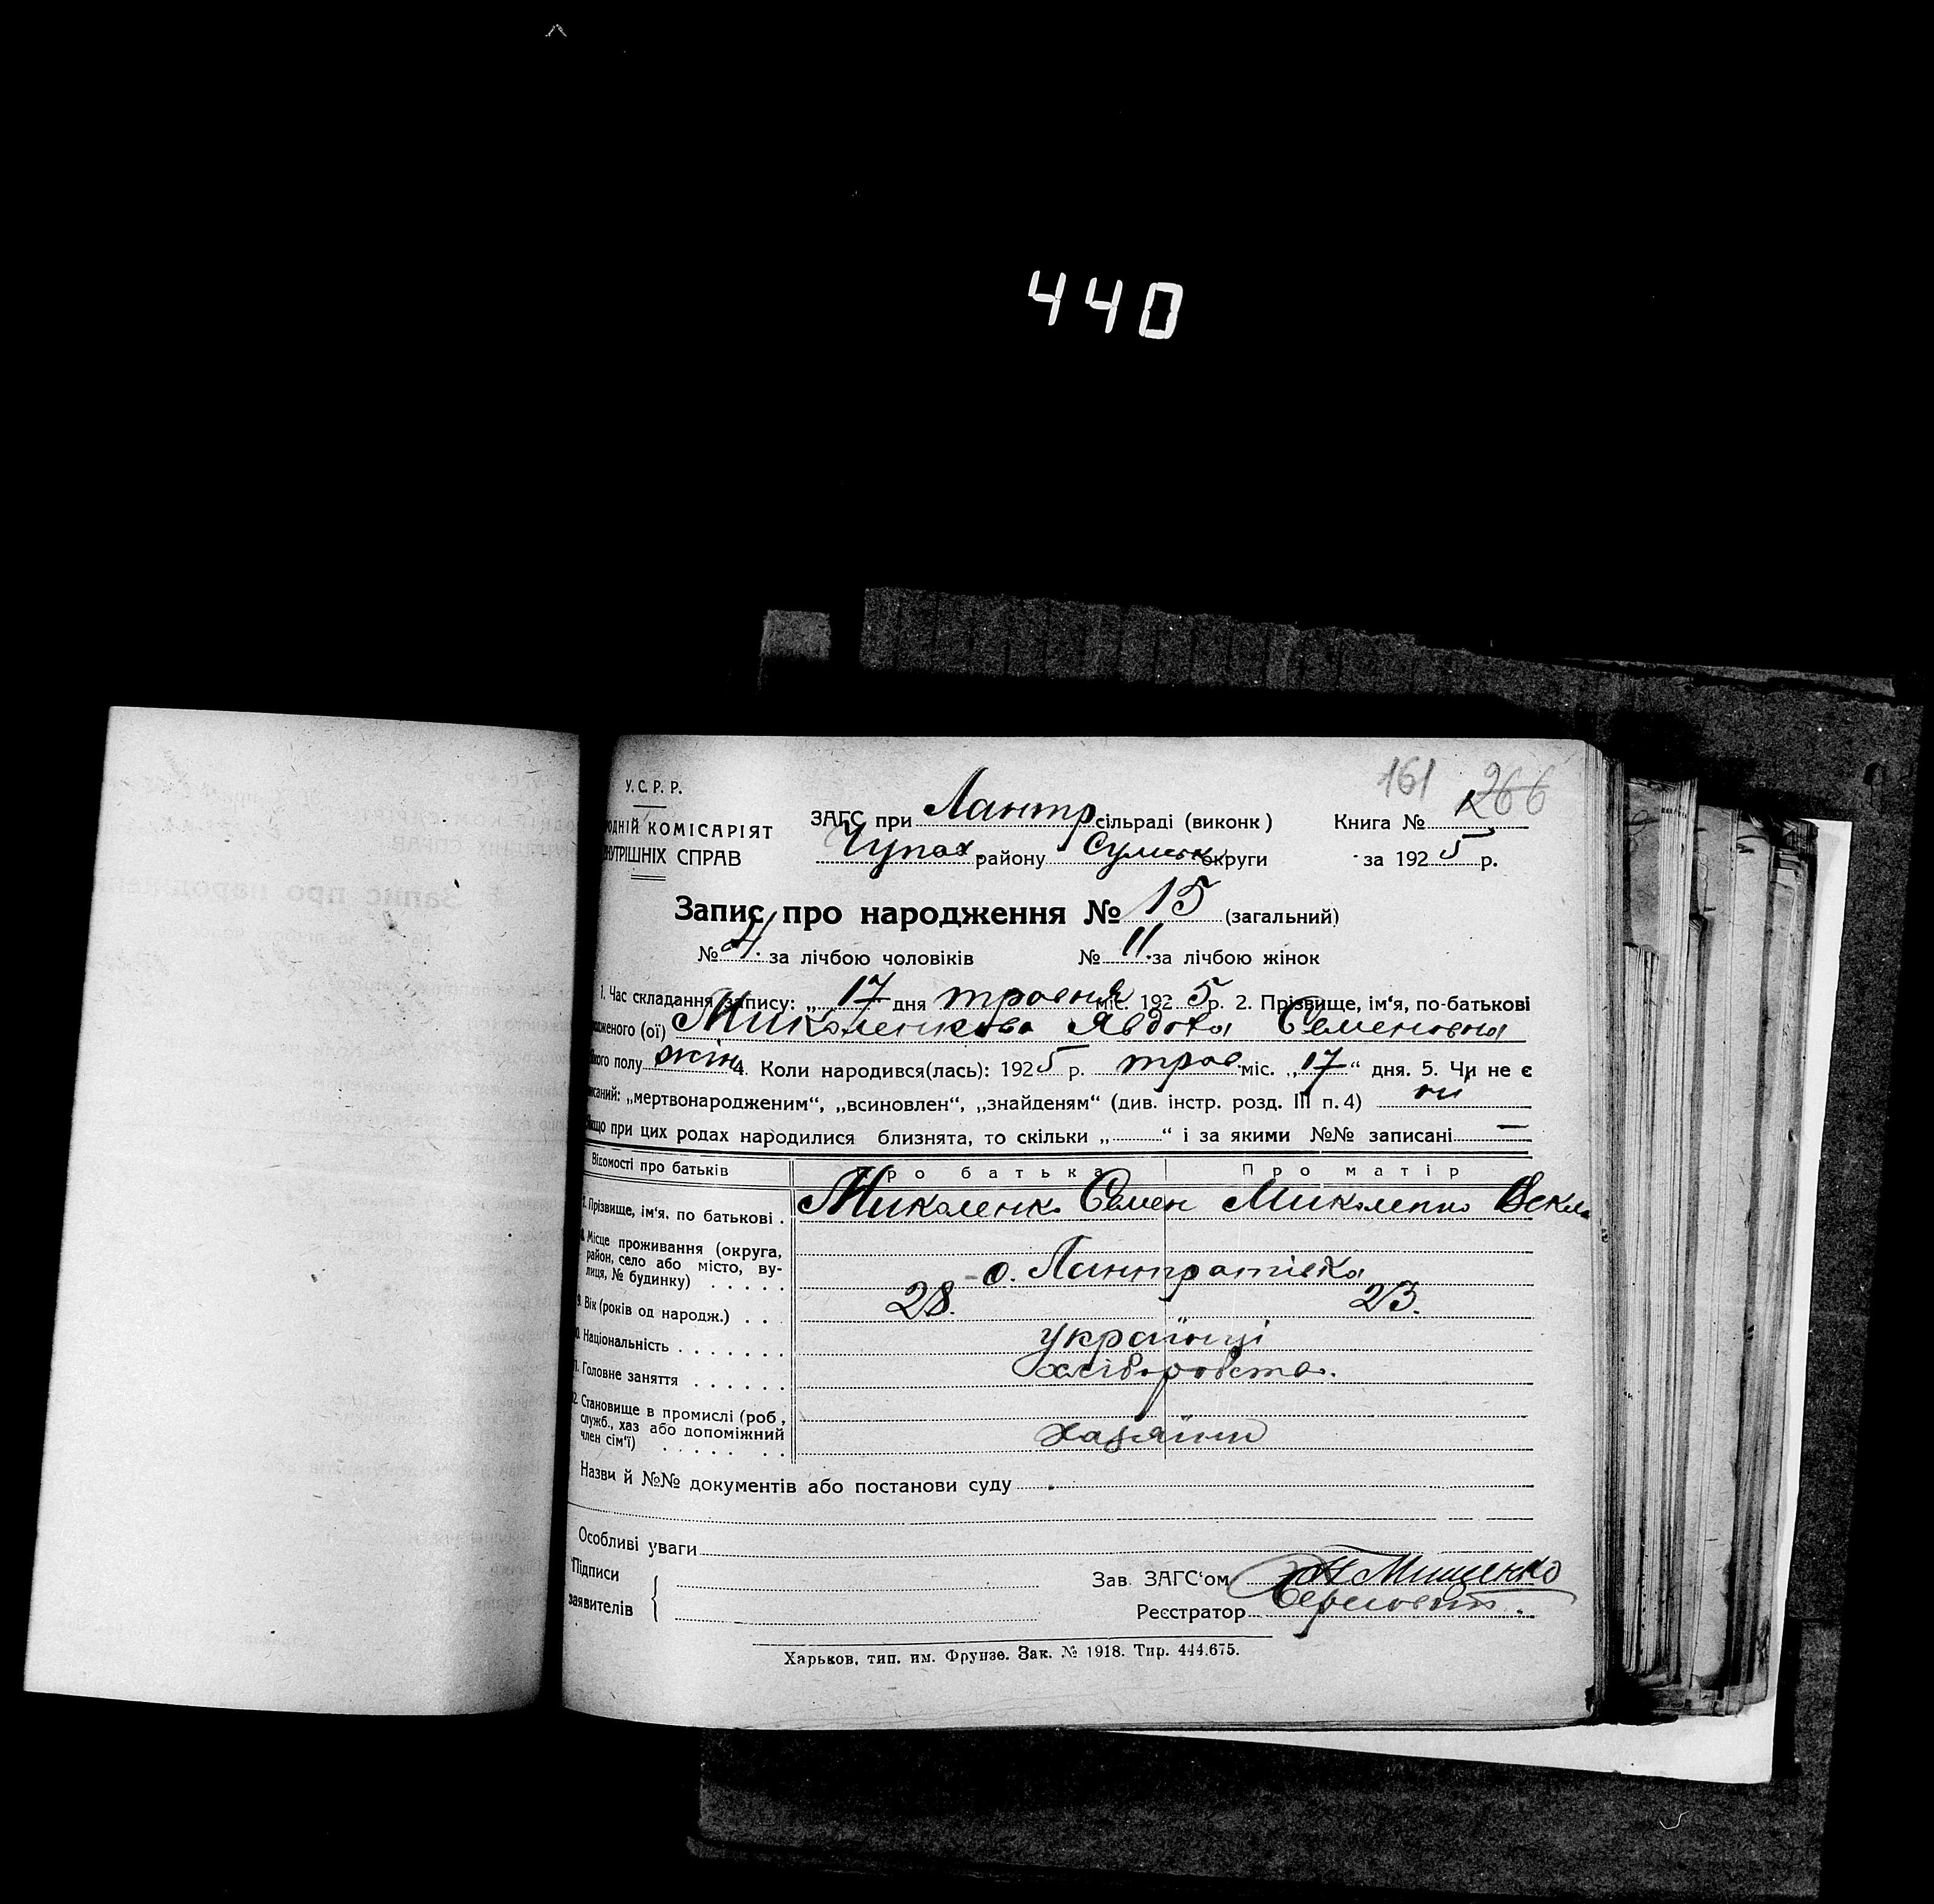 440
161 266
У. С. Р. Р.
ОДНІЙ КОМІСАРІЯТ
НУТРІШНІХ СПРАВ
ЗАГС при Лантр сільраді (виконк) Книга №
Чупах. району Сумськ округи за 1925 р.
Запис про народження № 15 (загальний)
№ 4. за лічбою чоловіків № 11. за лічбою жінок
1. Час складання запису: „ 17 дня травня міс. 1925 р. 2. Прізвище, ім‘я, по-батькові
одженого (ої) Миколенкова Явдоха Семеновна
полу жін 4. Коли народився(лась): 1925 р. трав. міс. „17“ дня. 5. Чи не є
исаний: „мертвонародженим“, „всиновлен“, „знайденям“ (див. інстр. розд. III п. 4) ні
що при цих родах народилися близнята, то скільки „ “ і за якими №№ записані —
Відомості про батьків Про батька Про матір
Прізвище, ім‘я. по батькові . Миколенко Семен Миколенко Векла
Місце проживання (округа,
район, село або місто, ву-
лиця, № будинку) . . . . . с. Лантратівка
9. Вік (років од народж.) . . . 28. 23.
Національність . . . . . . . українці
Головне заняття . . . . . . хліборобство.
Становище в промислі (роб.,
служб., хаз або допоміжний
член сім‘ї) . . . . . . . хазяїни
Назви й №№ документів або постанови суду
Особливі уваги
Підписи
заявителів
Зав. ЗАГС‘ом Мищенко
Реєстратор
Харьков, тип. им. Фрунзе. Зак. № 1918. Тир. 444.675.